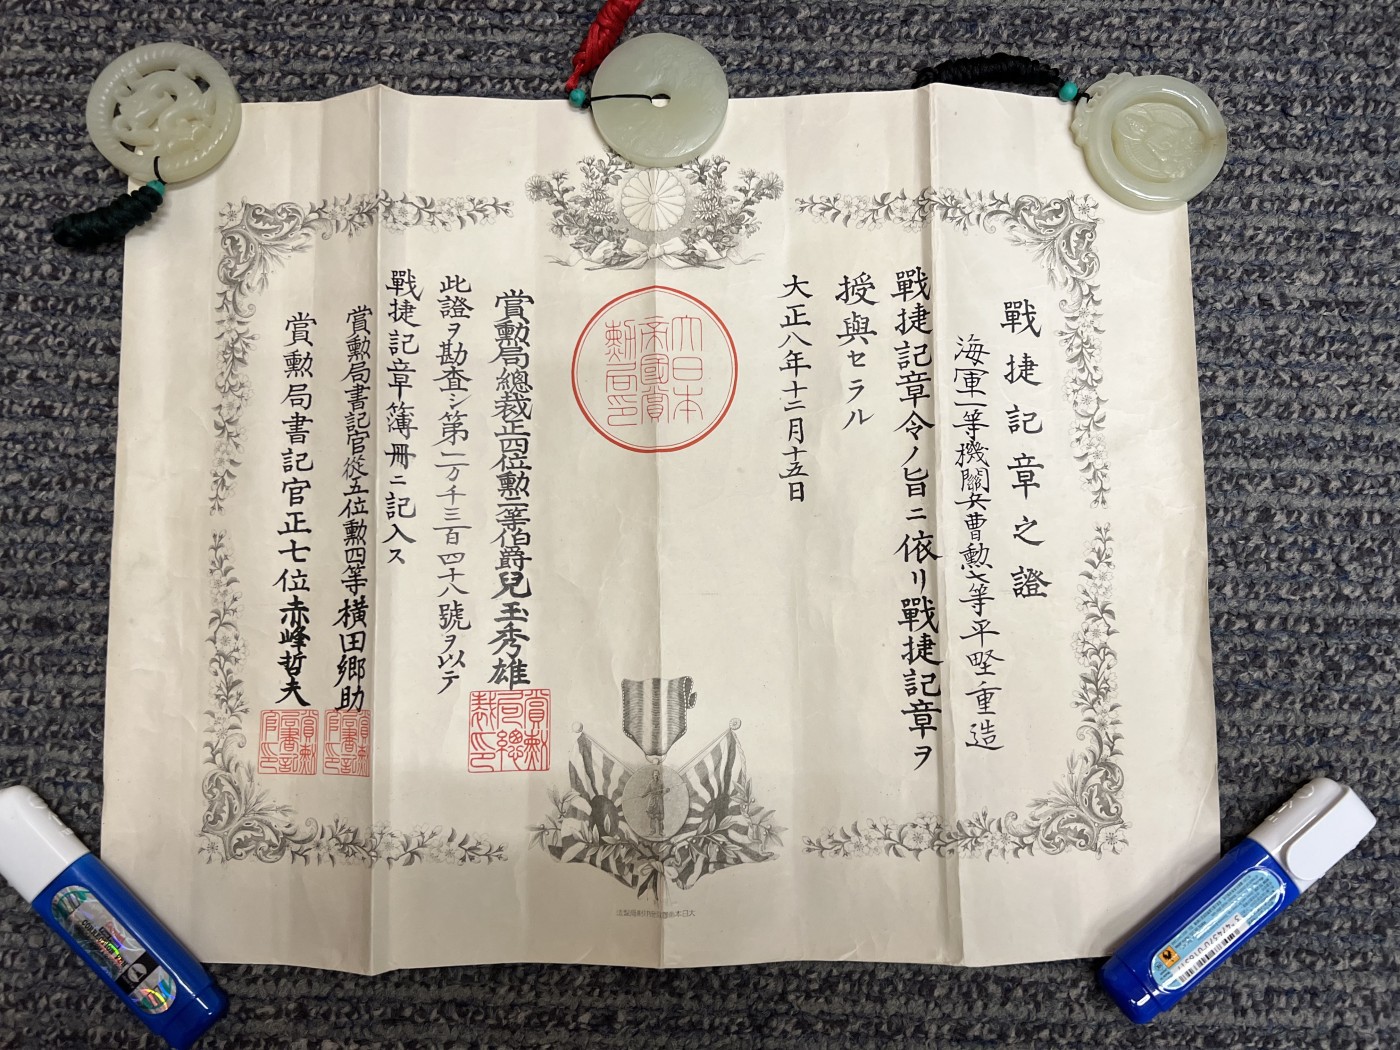 戰捷記章之證
海軍一等機關兵曹勲七等平墅重造
戰捷記章令ノ旨ニ依リ戰捷記章ヲ
授與セラル
大正八年十二月十五日
大日本
帝國賞
勲局印
賞勲局總裁正四位勲二等伯爵兒玉秀雄
賞勲
局總
裁印
此證ヲ勘査シ第二万千三百四十八號ヲ以テ
戰捷記章簿冊ニ記入ス
賞勲局書記官從五位勲四等横田郷助
賞勲
局書記
官印
賞勲局書記官正七位赤峰哲夫
賞勲
局書記
官印